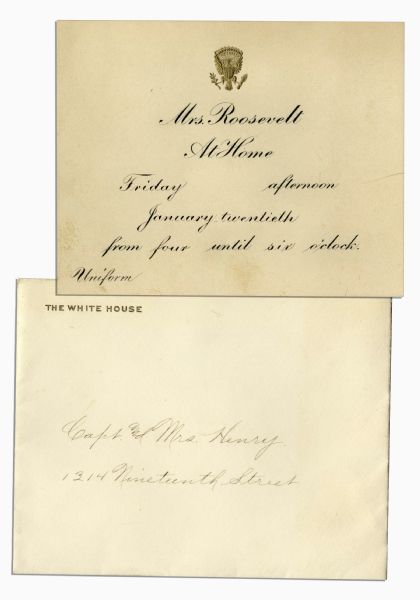 Mrs. Roosevelt
At Home
Friday afternoon
January twentieth
from four until six o'clock.
Uniform
THE WHITE HOUSE
Capt. & Mrs. Henry.
1314 Nineteenth Street